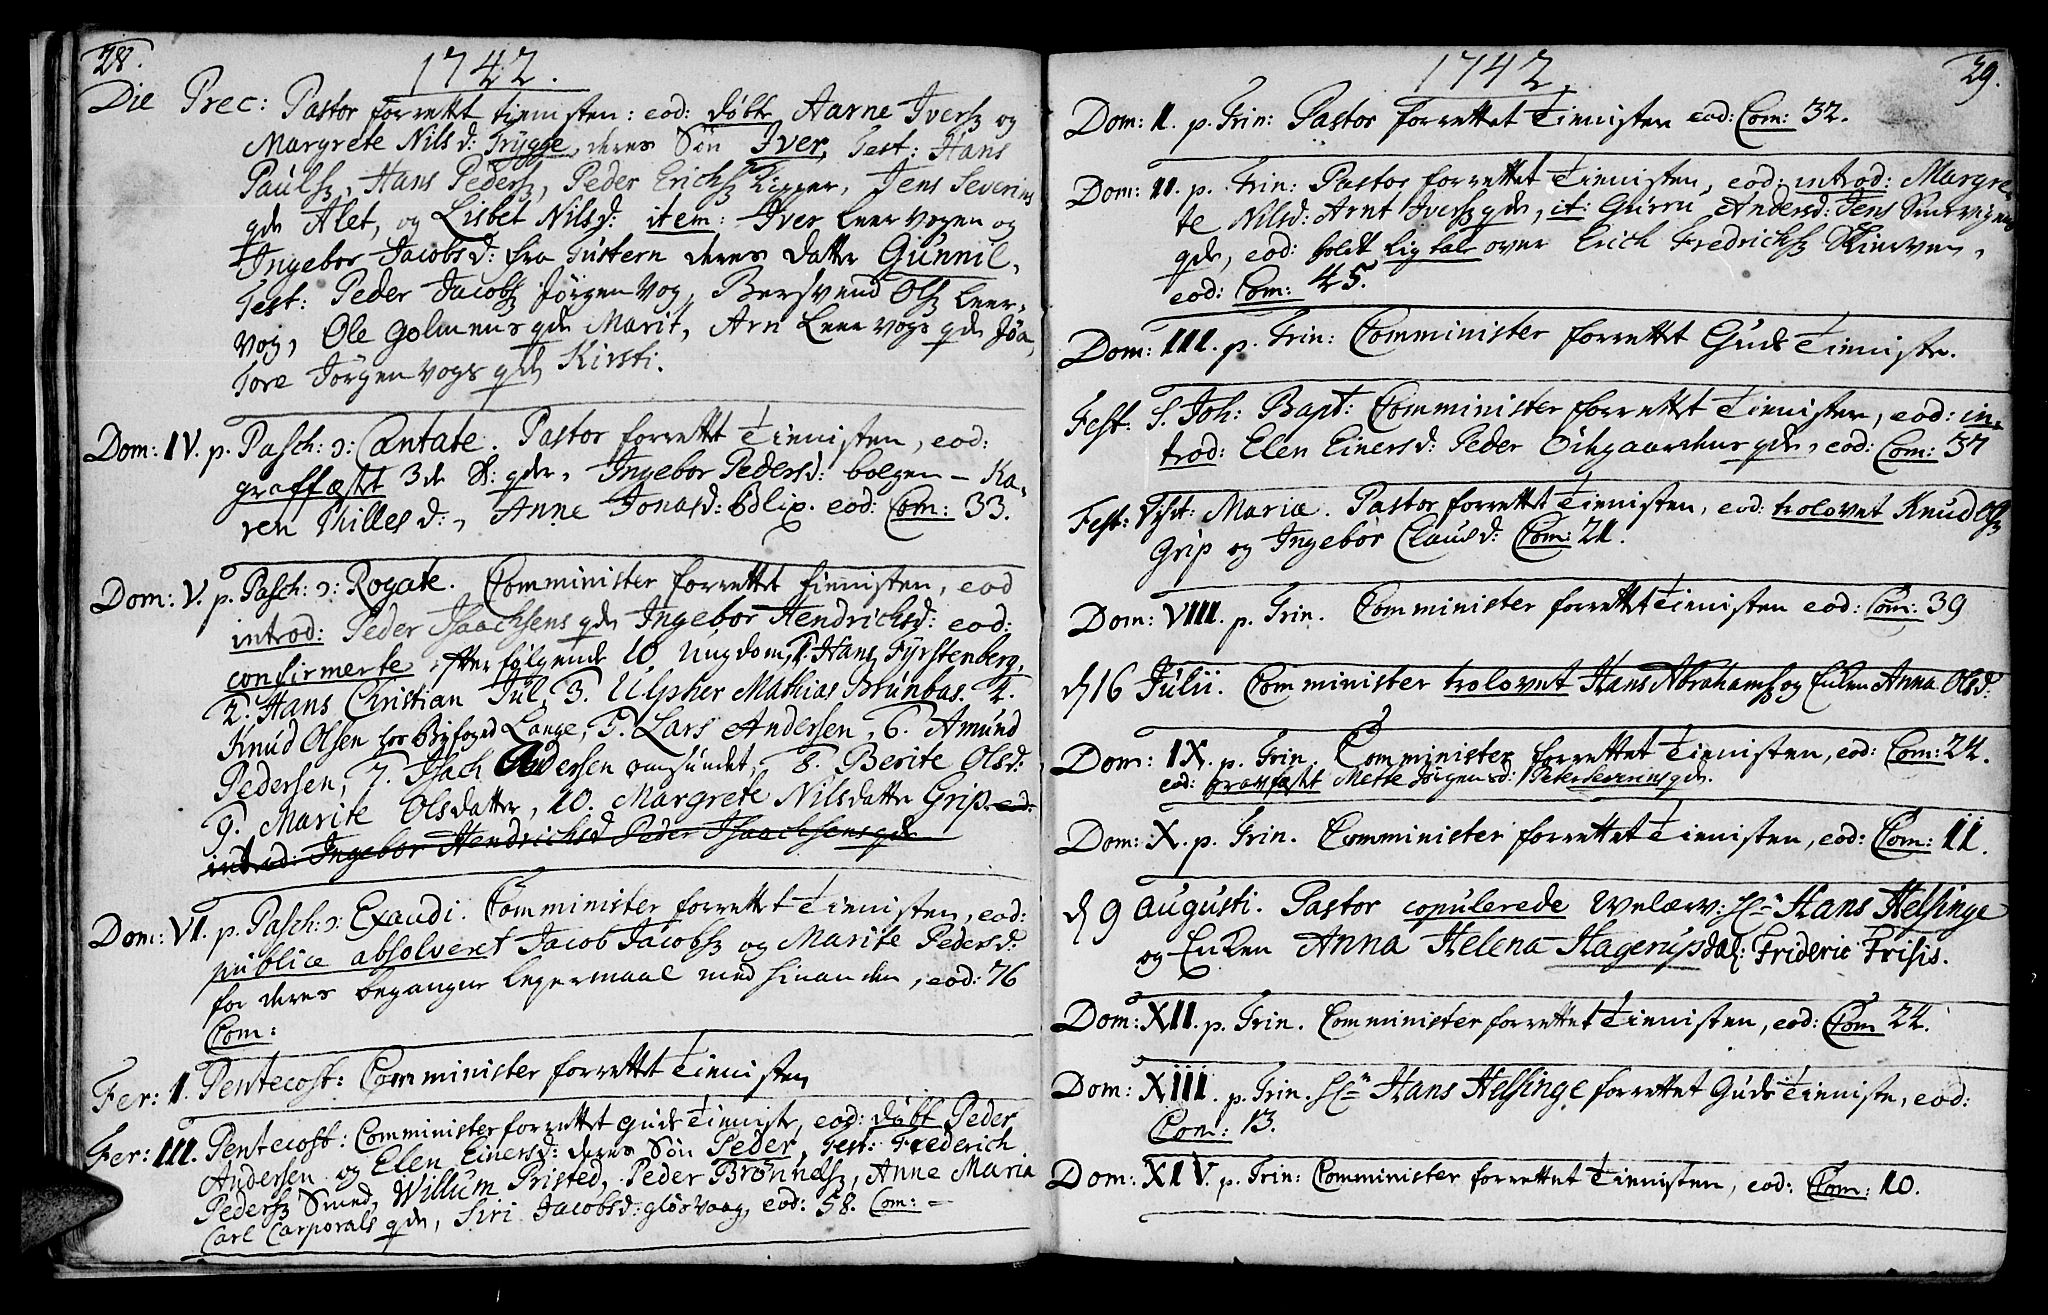 28.
1742.
Die Prec: Pastor forrettet tienisten: eod: døbt Aarne Ivers og
Margrete Nilsd: Trygge, deres Søn Iver, Test: Hans
Pauls, Hans Peders, Peder Erichs Ligger, Jens Severins
qde Alet, og Lisbet Nilsd: item: Iver Leervogen og
Ingebor Jacobsd: fra Tustern deres datter Gunnil,
Test: Peder Jacobs Jörgen Vog, Bersvend Ols Leer-
vog, Ole Golmens qde Marit, Arn Leervogs qde Jøa,
Tore Jörgenvogs qde Kirsti.
Dom: IV. p. Pasch: ɔ: Cantate. Pastor forrettet Tienisten, eod:
graffæstet 3de St: qder, Ingebor Pedersd: bolgen - Ka-
ren Nillesd:, Anne Jonasd: Odlip. eod: Com: 33.
Dom: V. p. Pasch: ɔ: Rogate. Comminister forrettet tienisten, eod
introd: Peder Isaachsens qde Ingebor Hendrichsd: eod:
confirmerte efterfølgende 10 Ungdom, 1. Hans Fyrstenberg,
2. Hans Christian Jul, 3. Ulpher Mathias Brunbas. 4.
Knud Olsen hos Byfoged Lange, 5. Lars Andersen, 6. Amund
Pedersen, 7. Isach Andersen omsundet, 8. Berite Olsd:
9. Marite Olsdatter, 10. Margrete Nilsdatter Grip. eod:
introd: Ingebor Hendrichsd Peder Isaachsens qde
Dom: VI. p. Pasch: ɔ: Exaudi. Comminister forrettet Tienisten, eod:
publice absolveret Jacob Jacobs og Marite Pedersd:
for deres begangne Legermaal med hinanden, eod: 76
Com:
Fer: I. Pentecost: Comminister forrettet Tienisten
Fer: III. Pentecost: Comminister forrettet gudsTieniste, eod: døbt Peder
Andersen og Elen Einersd: deres Søn Peder, Test: Frederich
Peders Smed, Willum Pristed, Peder Brønnels, Anne Maria
Carl Corporals qde, Siri Jacobsd: glösvaag, eod: 58. Com: -
29.
1742
Dom: I. p. Trin: Pastor forrettet Tienisten eod: Com: 32.
Dom: II. p. Trin: Pastor forrettet Tienisten, eod: introd: Margre-
te Nilsd: Arnt Ivers qde, it: Gurru Andersd: Jens
qde, eod: holdt Ligtale over Erich Fredrichs Skierven,
eod: Com: 45.
Dom: III. p. Trin: Comminister forrettet GudsTieniste.
Fest: S. Joh: Bapt: Comminister forrettet Tienisten, eod: in-
trod: Elen Einersd: Peder Öihgaardens qde, eod: Com: 37
Fest: Visit: Mariæ. Pastor forrettet Tienisten, eod: trolovet Knud Ols
Grip og Ingebor Clausd: Com: 21.
Dom: VIII. p. Trin. Comminister forrettet Tienisten eod: Com: 39
d 16 Julii. Comminister trolovet Hans Abrahams og Enken Anna Olsd:
Dom: IX. p. Trin. Comminister forrettet Tienisten, eod: Com: 24.
eod: gravfæstet Mette Jörgensd: Peter Severins qde.
Dom: X. p. Trin. Comminister forrettet Tienisten, eod: Com: 11.
d 9 Augusti. Pastor copulerede Welærv: Hr Hans Helsinge
og Enken Anna Helena Hagerups dal: Frideric Frisis.
Dom: XII. p. Trin. Comminister forrettet Tienisten, eod: Com 24.
Dom: XIII. p. Trin. Hr Hans Helsinge forrettet GudsTieniste, eod:
Com: 13.
Dom: XIV. p. Trin: Comminister forrettet Tienisten, eod: Com: 10.